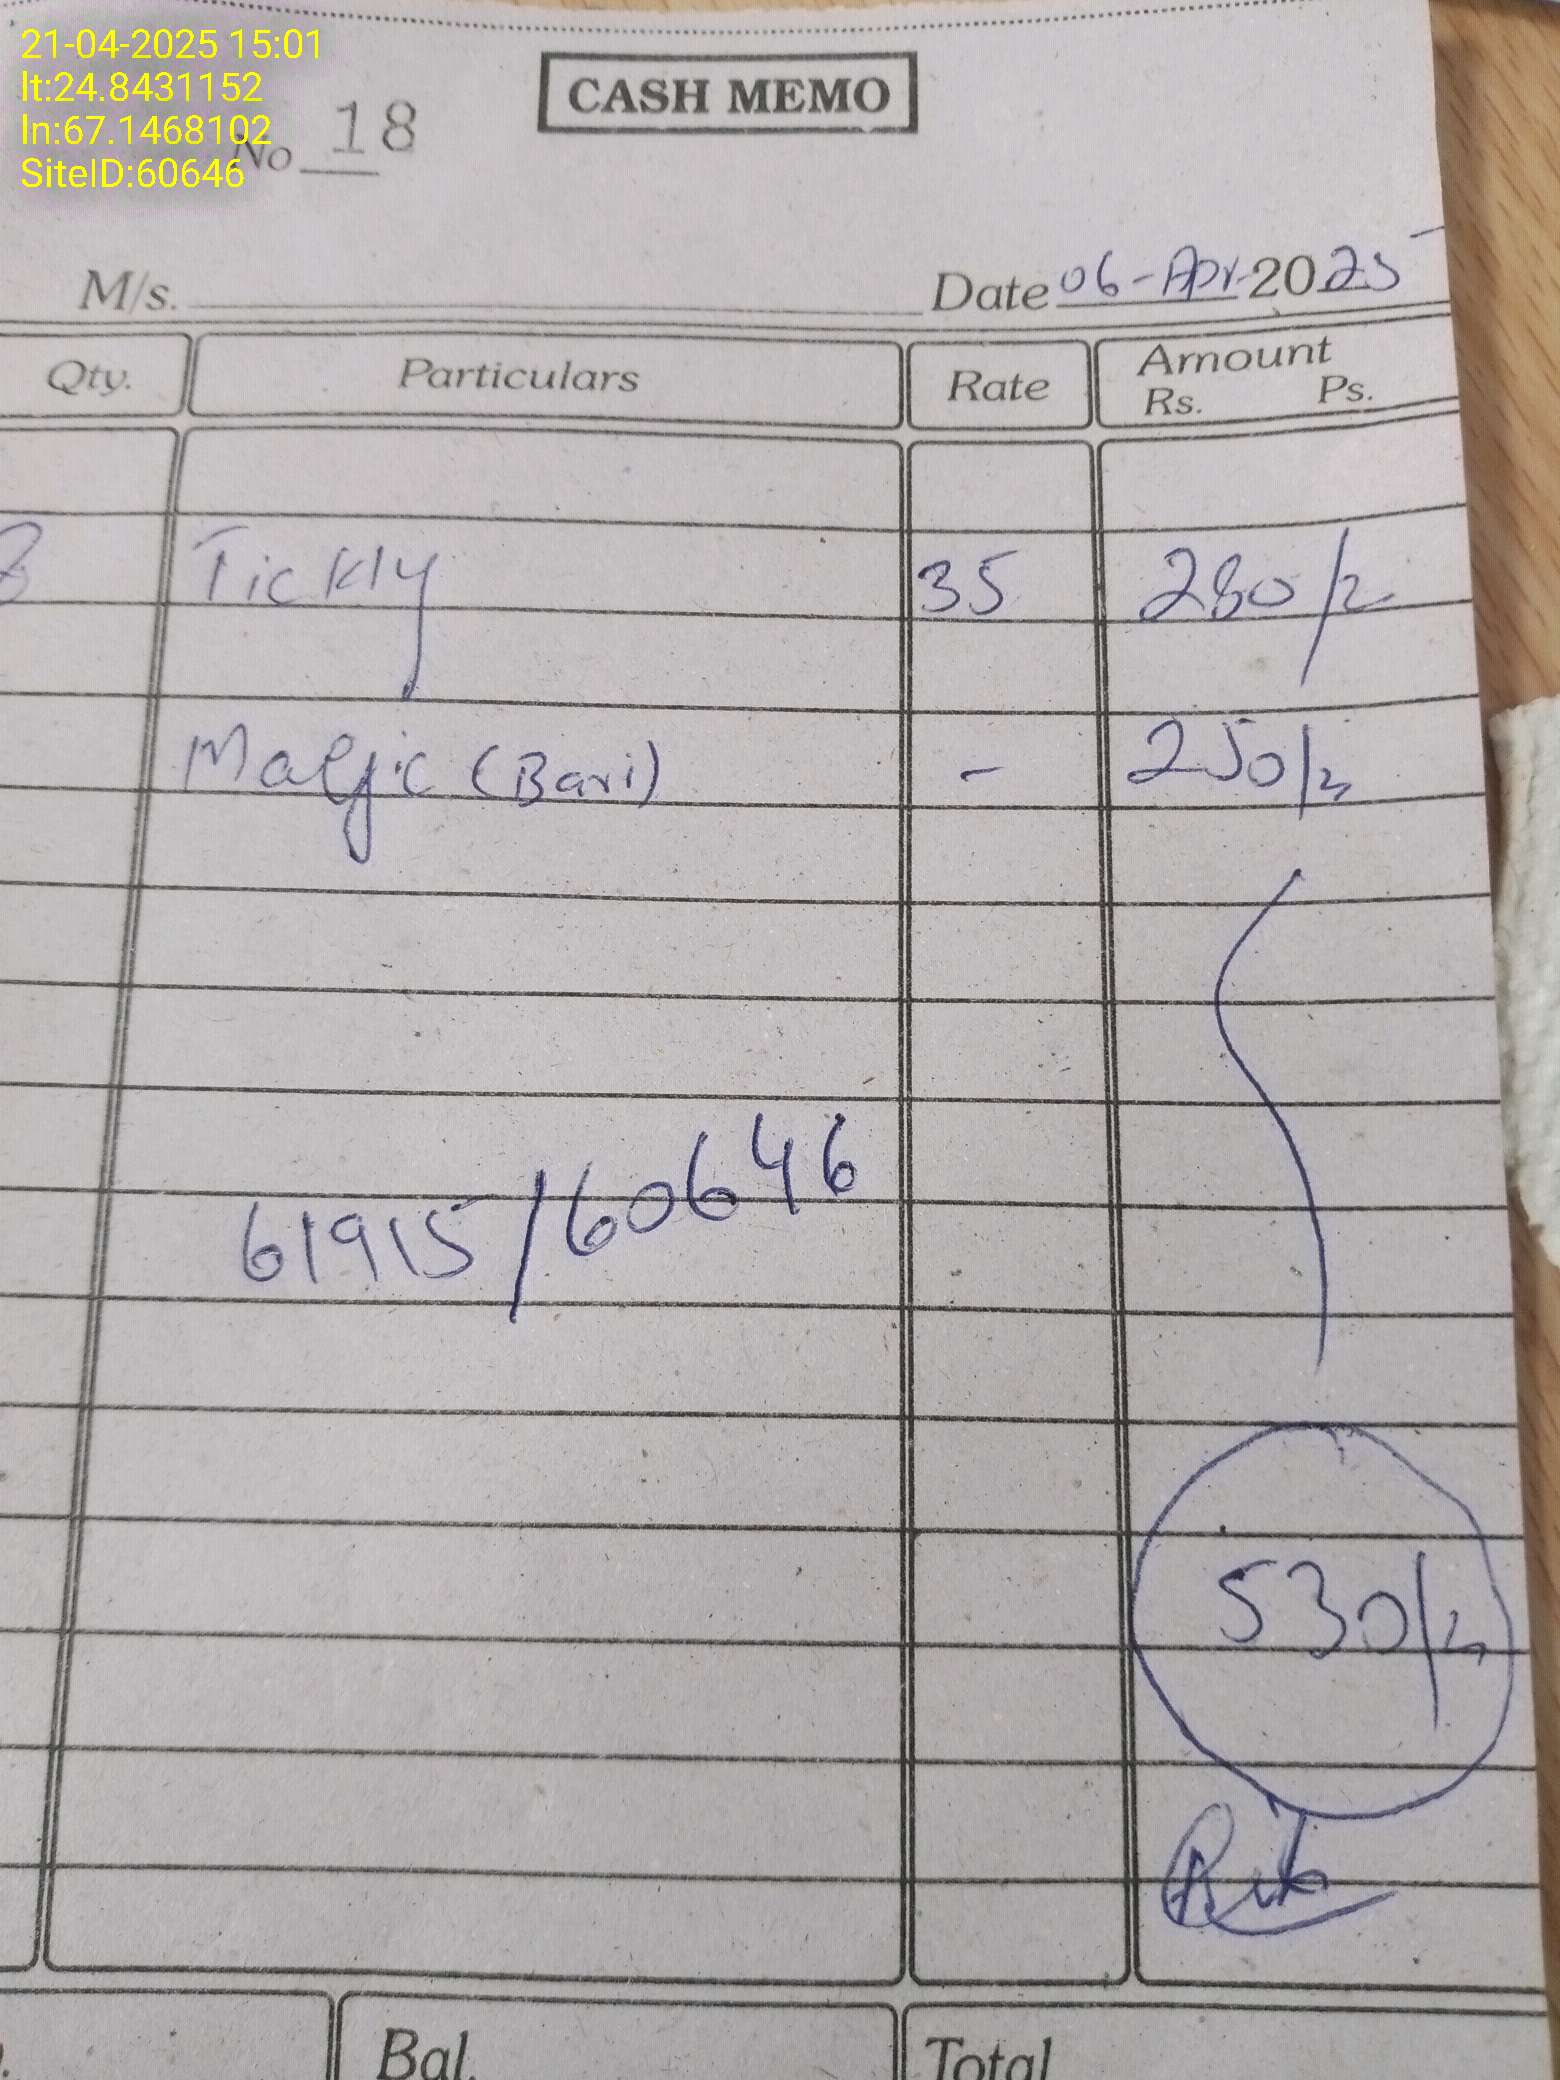 21-04-2025 15:01
lt:24.8431152
ln:67.1468102
SiteID:60646
CASH MEMO
No 18
M/s. Date 06-Apr-2025
Qty. Particulars Rate Amount
Rs. Ps.
8 Tickly 35 280/-
Magic (Bari) - 250/-
61915/60646
530/-
Bal. Total